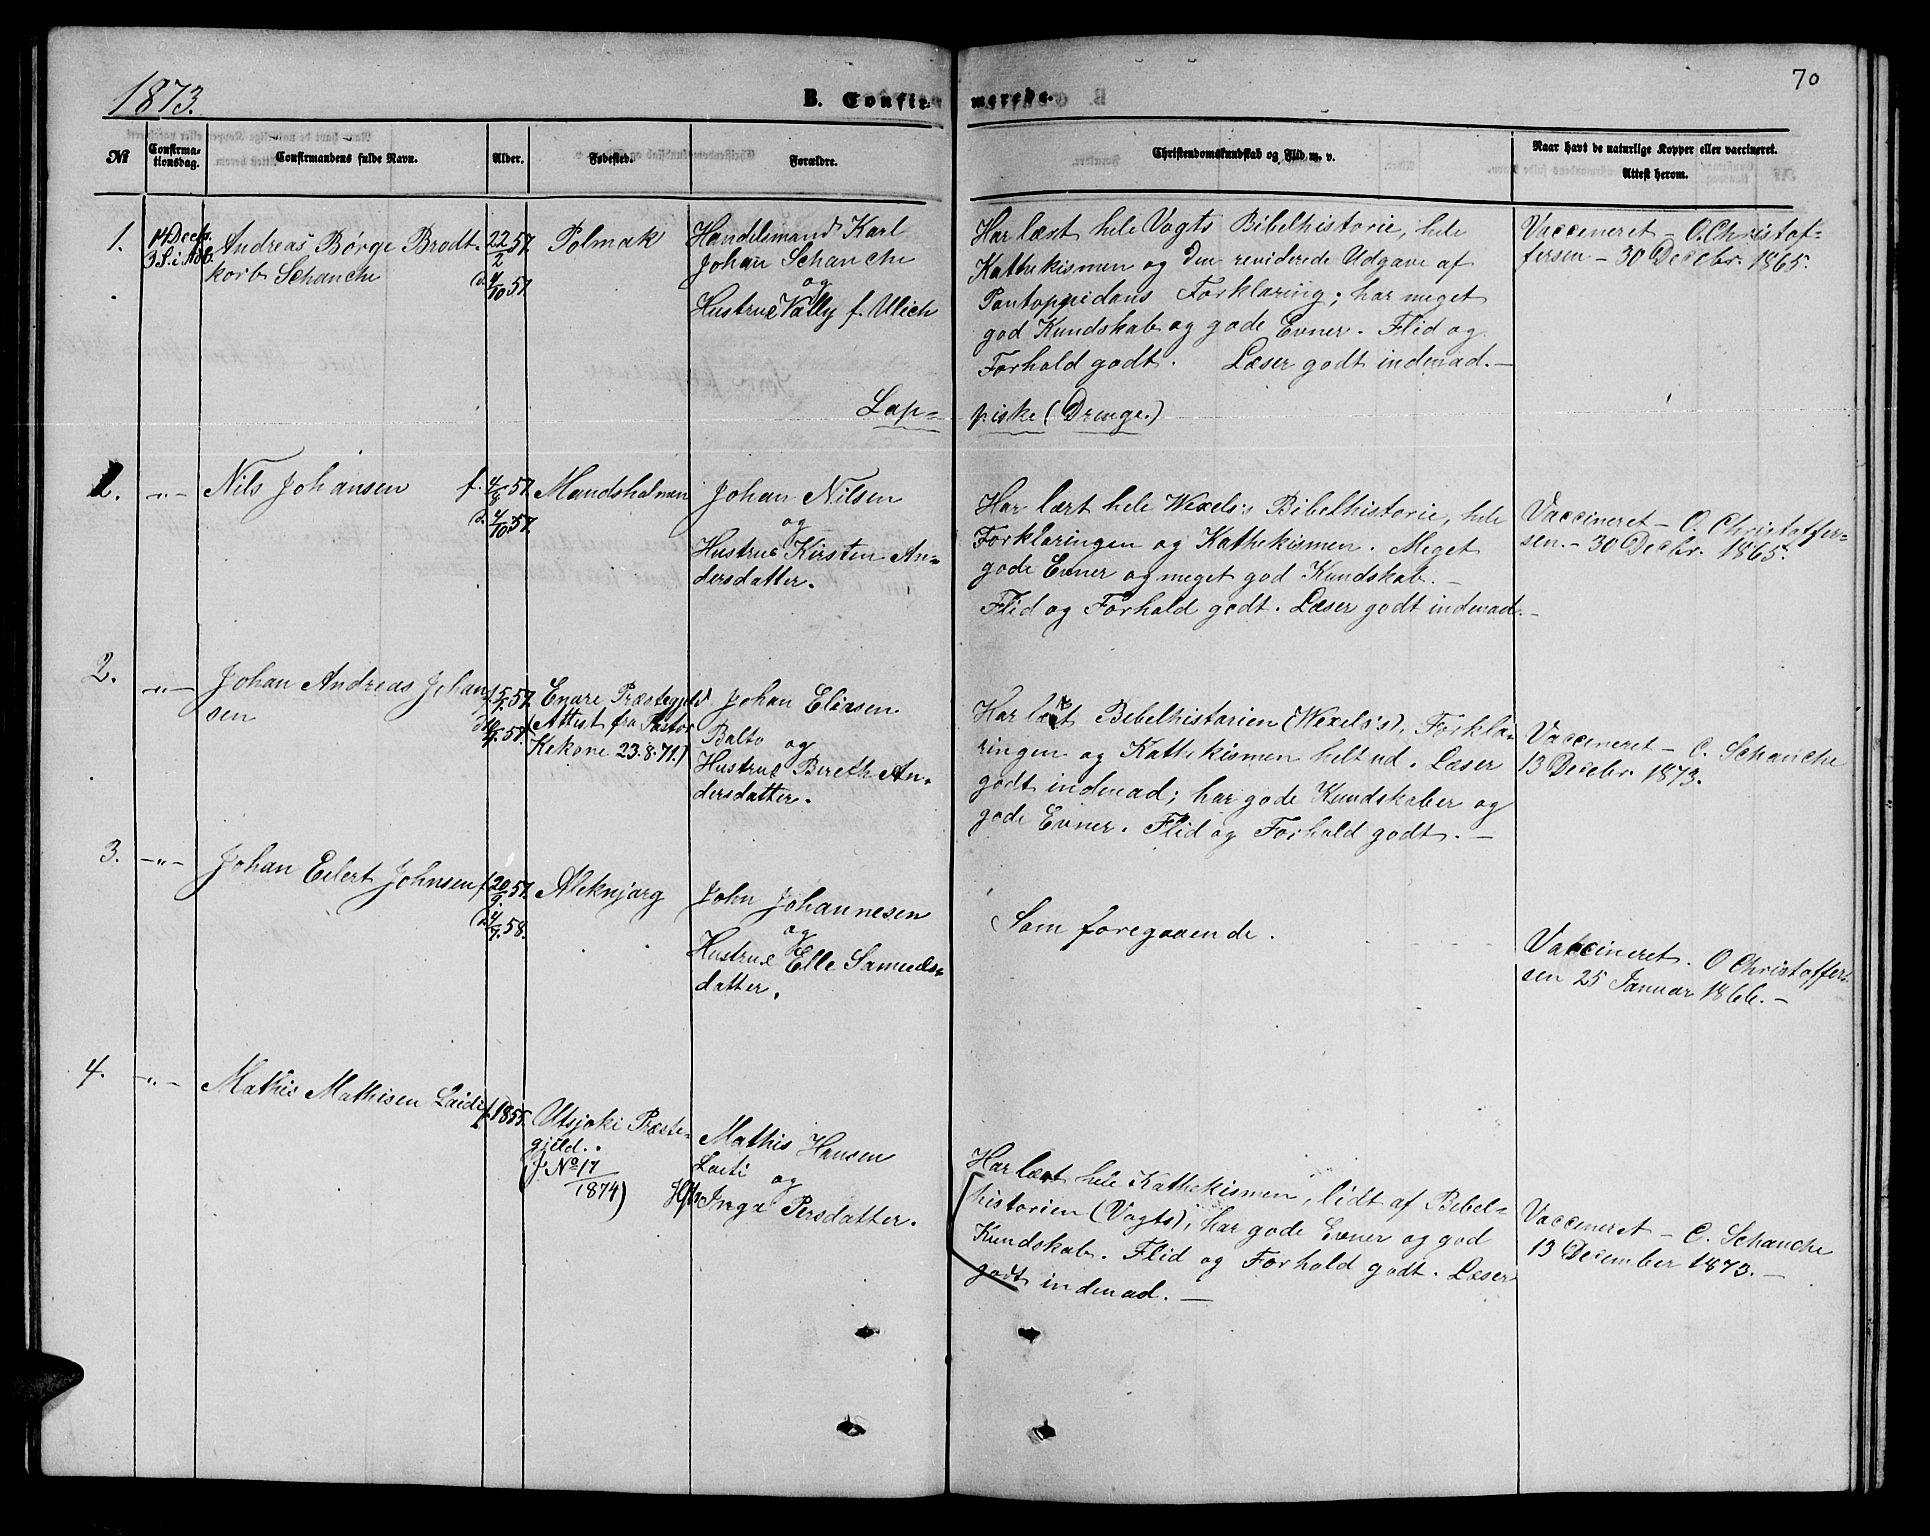 1873.
B. Confir-
merede.
70
№
Confirma-
tionsdag.
Confirmandens fulde Navn.
Alder.
Fødested.
Forældre.
Christendomskundskab og Flid m. v.
Naar havt de naturlige Kopper eller vaccineret.
Attest herom.
1.
14 Decb.
3 S. i Adv.
Andreas Børge Brodt-
korb Schanche
22/2 57
d. 4/10 57
Polmak
Handelsmand Karl
Johan Schanche
og
Hustrue Vally f. Ulich
Har læst hele Vogts Bibelhistorie, hele
Kathekismen og den reviderede Udgave af
Pontoppidans Forklaring; har meget
god Kundskab og gode Evner. Flid og
Forhold godt. Læser godt indenad. —
Vaccineret – O. Christof-
fersen – 30 Decebr. 1865.
Lap-
piske (Drenge.)
1.
-"-
Nils Johansen
f. 4/8 57
d. 4/10 57
Mandsholmen
Johan Nilsen
og
Hustrue Kirsten An-
dersdatter.
Har lært hele Wexels's Bibelhistorie, hele
Forklaringen og Kathekismen. Meget
gode Evner og meget god Kundskab. –
Flid og Forhold godt. Læser godt indenad. –
Vaccineret – O. Christoffer-
sen. – 30 Decbr. 1865.
2.
-"-
Johan Andreas Johan
sen
57
57
Enare Præstegjeld
(Attest fra Pastor
23.8.71.)
Johan Eliasen
Balto og
Hustrue Bereth An-
dersdatter.
Har lært Bibelhistorien (Wexels's), Forkla-
ringen og Kathekismen helt ud. Læser
godt indenad; har gode Kundskaber og
gode Evner. Flid og Forhold godt. —
Vaccineret – C. Schanche
13 Decebr. 1873.
3.
-"-
Johan Eilert Johnsen
f. 20/9 57.
d. 4/7. 58.
Aleknjarg
John Johannesen
og
Hustrue Elle Samuels-
datter.
Som foregaaende.
Vaccineret. O Christoffer-
sen 25 Januar 1866. –
4.
-"-
Mathis Mathisen Laiti
f. 1855.
Utsjoki Præste-
gjeld.
(J No 17/1874)
Mathis Hansen
Laiti og
Hstr Inga Persdatter.
Har lært hele Kathekismen, lidt af Bibel-
historien (Vogts), har gode Evner og god
Kundskab. Flid og Forhold godt. Læser
godt indenad. —
Vaccineret – C. Schanche
13 December 1873. –